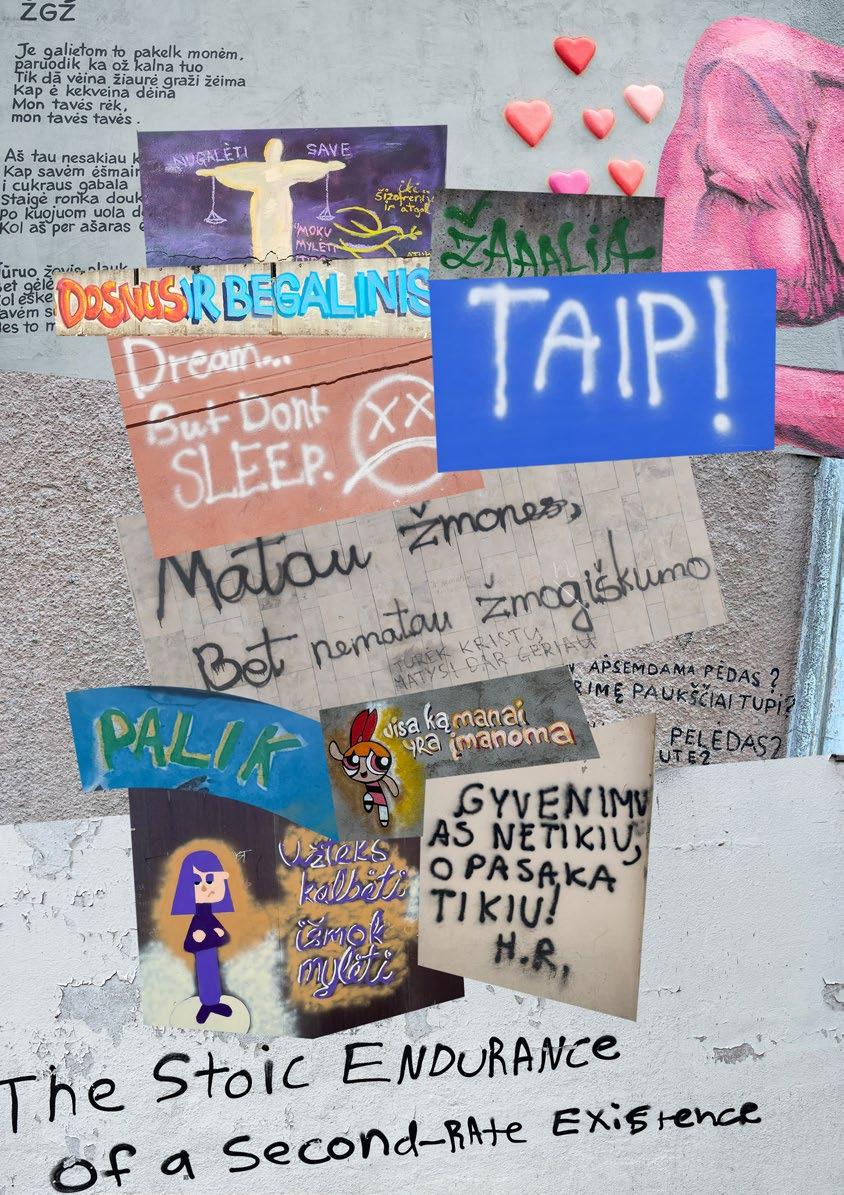 ŽGŽ
Je galietom to pakelk monėm,
paruodik ka ož kalna tuo
Tik dā vėina žiaurė graži žėima
Kap ė kekveina dėina
Mon tavės rėk,
mon tavės tavės.
Aš tau nesakiau
Kap savėm
i cukraus gabala
Staigė ronka
Po kuojuom uola
Kol aš per ašaras
NUGALĖTI SAVE
iki
šizofrenijos
ir atgal
"MOKU
MYLĖTI
ŽAAALIA
DOSNUS IR BEGALINIS
TAIP!
Dream...
But Dont
SLEEP.
Matau žmones,
Bet nematau žmogiškumo
TURĖK KRISTU
MATYSI DAR GERIAU
APSEMDAMA PĖDAS?
PAUKŠČIAI TUPI?
PELĖDAS?
PALIK
Visa ką manai
yra įmanoma
GYVENIMU
AŠ NETIKIU,
O PASAKA
TIKIU!
H.R.
Užteks
kalbėti
išmok
mylėti
The Stoic ENDURANCe
Of a Second-RAte Existence